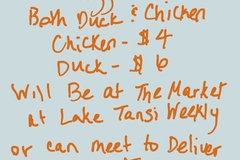 Both Duck & Chicken
Chicken - $4
Duck - $6
Will Be at The Market
at Lake Tansi Weekly
or can meet to Deliver